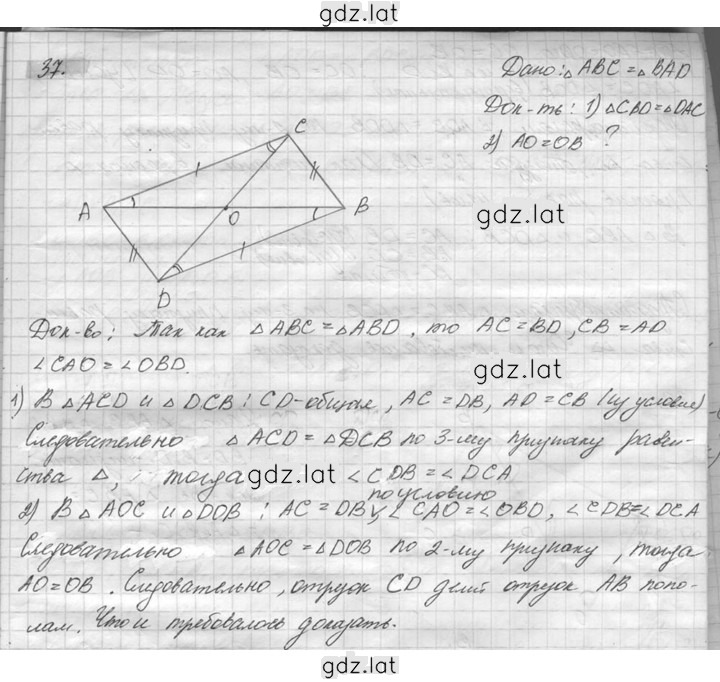 gdz.lat
37.
Дано: △ABC = △BAD
Док-ть: 1) △CBD = △DAC
2) AO = OB ?
C
A
B
O
D
gdz.lat
Док-во: Так как △ABC = △ABD, то AC = BD, CB = AD
∠CAO = ∠OBD.
gdz.lat
1) В △ACD и △DCB: CD-общая, AC = DB, AD = CB (из условия)
Следовательно △ACD = △DCB по 3-му признаку равен-
ства △, тогда ∠CDB = ∠DCA
gdz.lat
по условию
2) В △AOC и △DOB: AC = DB, ∠CAO = ∠OBD, ∠CDB = ∠DCA
Следовательно △AOC = △DOB по 2-му признаку, тогда
AO = OB. Следовательно, отрезок CD делит отрезок AB попо-
лам. Что и требовалось доказать.
gdz.lat